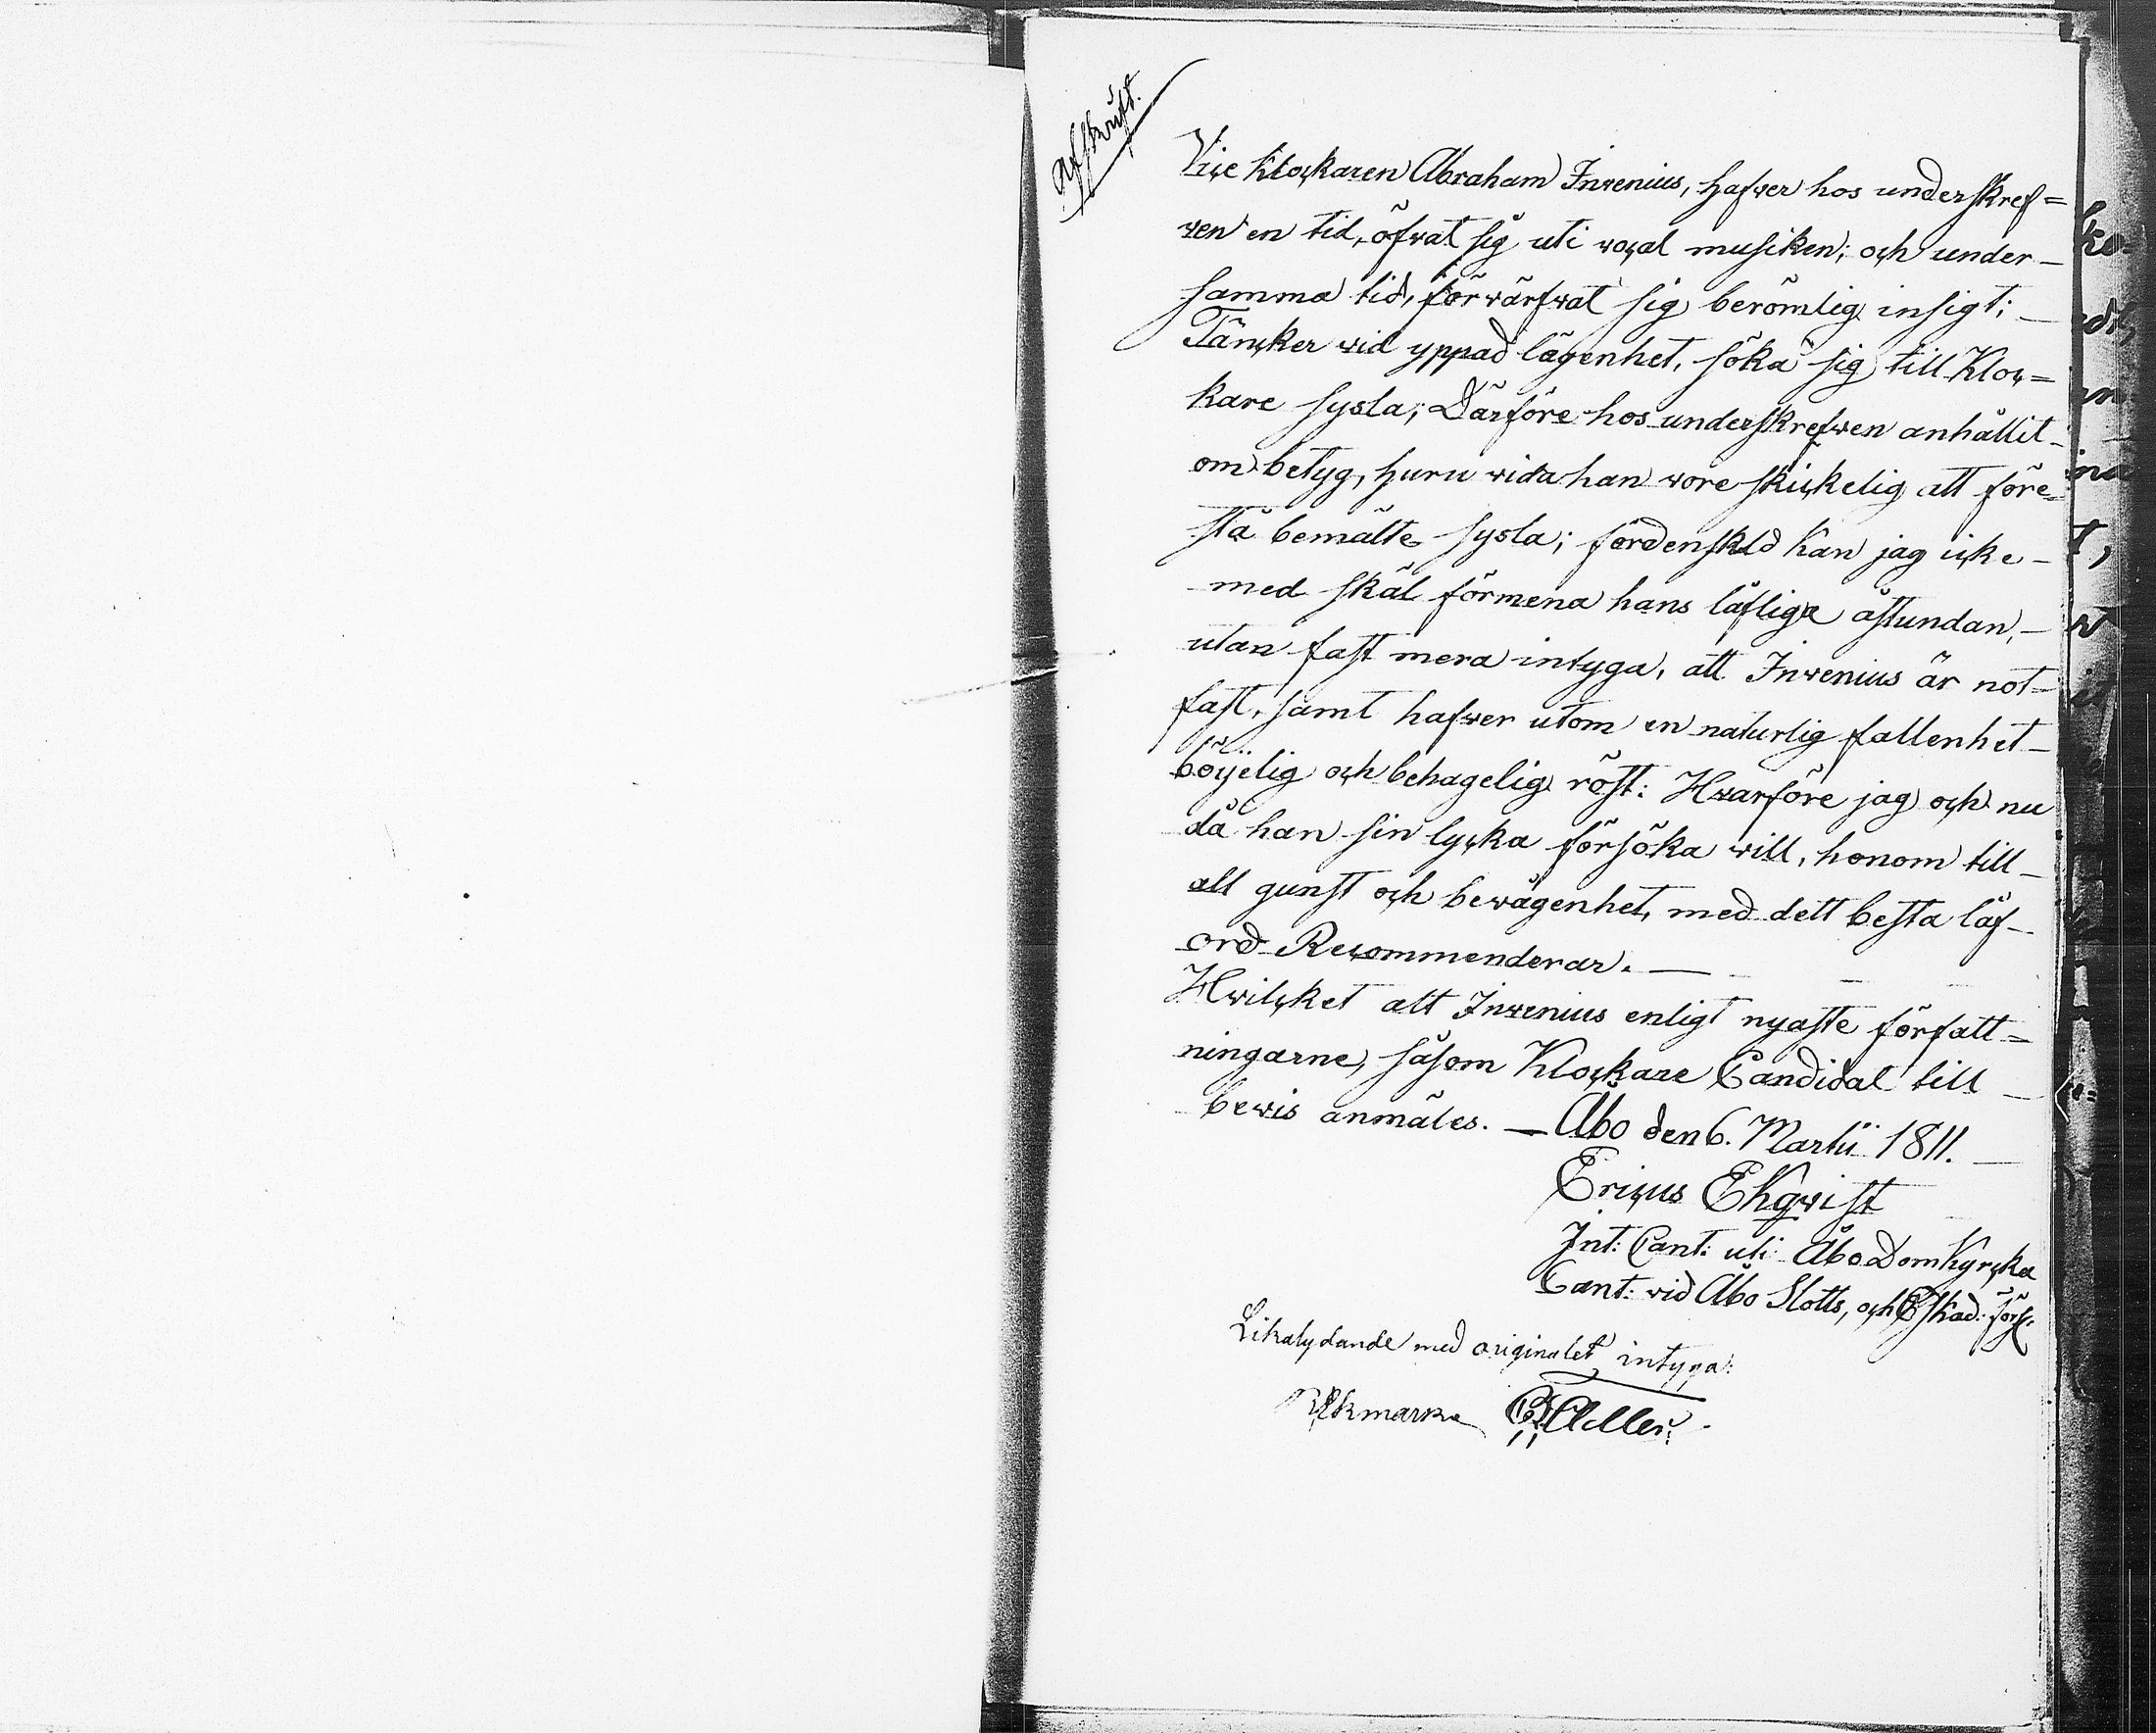 Afskrift.
Vice Klockaren Abraham Inrenius, hafver hos underskref=
ven en tid, öfvat sig uti vocal musiken; och under
samma tid, förvärfvat sig berömlig insigt;
Täncker vid yppad lägenhet, söka sig till Kloc=
kare sysla; Därföre hos underskrefven anhållit
om betyg, huru vida han vore skickelig att före=
stå bemälte sysla; fördenskld kan jag icke
med skäl förmena hans låfliga åstundan,
utan fast mera intyga, att Inrenius är not=
fast, samt hafver utom en naturlig fallenhet
böyelig och behagelig röst: Hvarföre jag och nu
då han sin lycka försöka vill, honom till
all gunst och bevågenhet, med dett besta låf
ord Recommenderar.
Hvilcket att Inrenius enligt nyaste författ=
ningarne, såsom Klockare Candidat till
bevis anmäles. — Åbo den 6. Martii 1811.
Ericus Ekqvist
Int: Cant: uti Åbo Domkyrcka
Cant: vid Åbo Slotts, och Eskad: förs:
Likalydande med originalet intyga:
Ekmarck